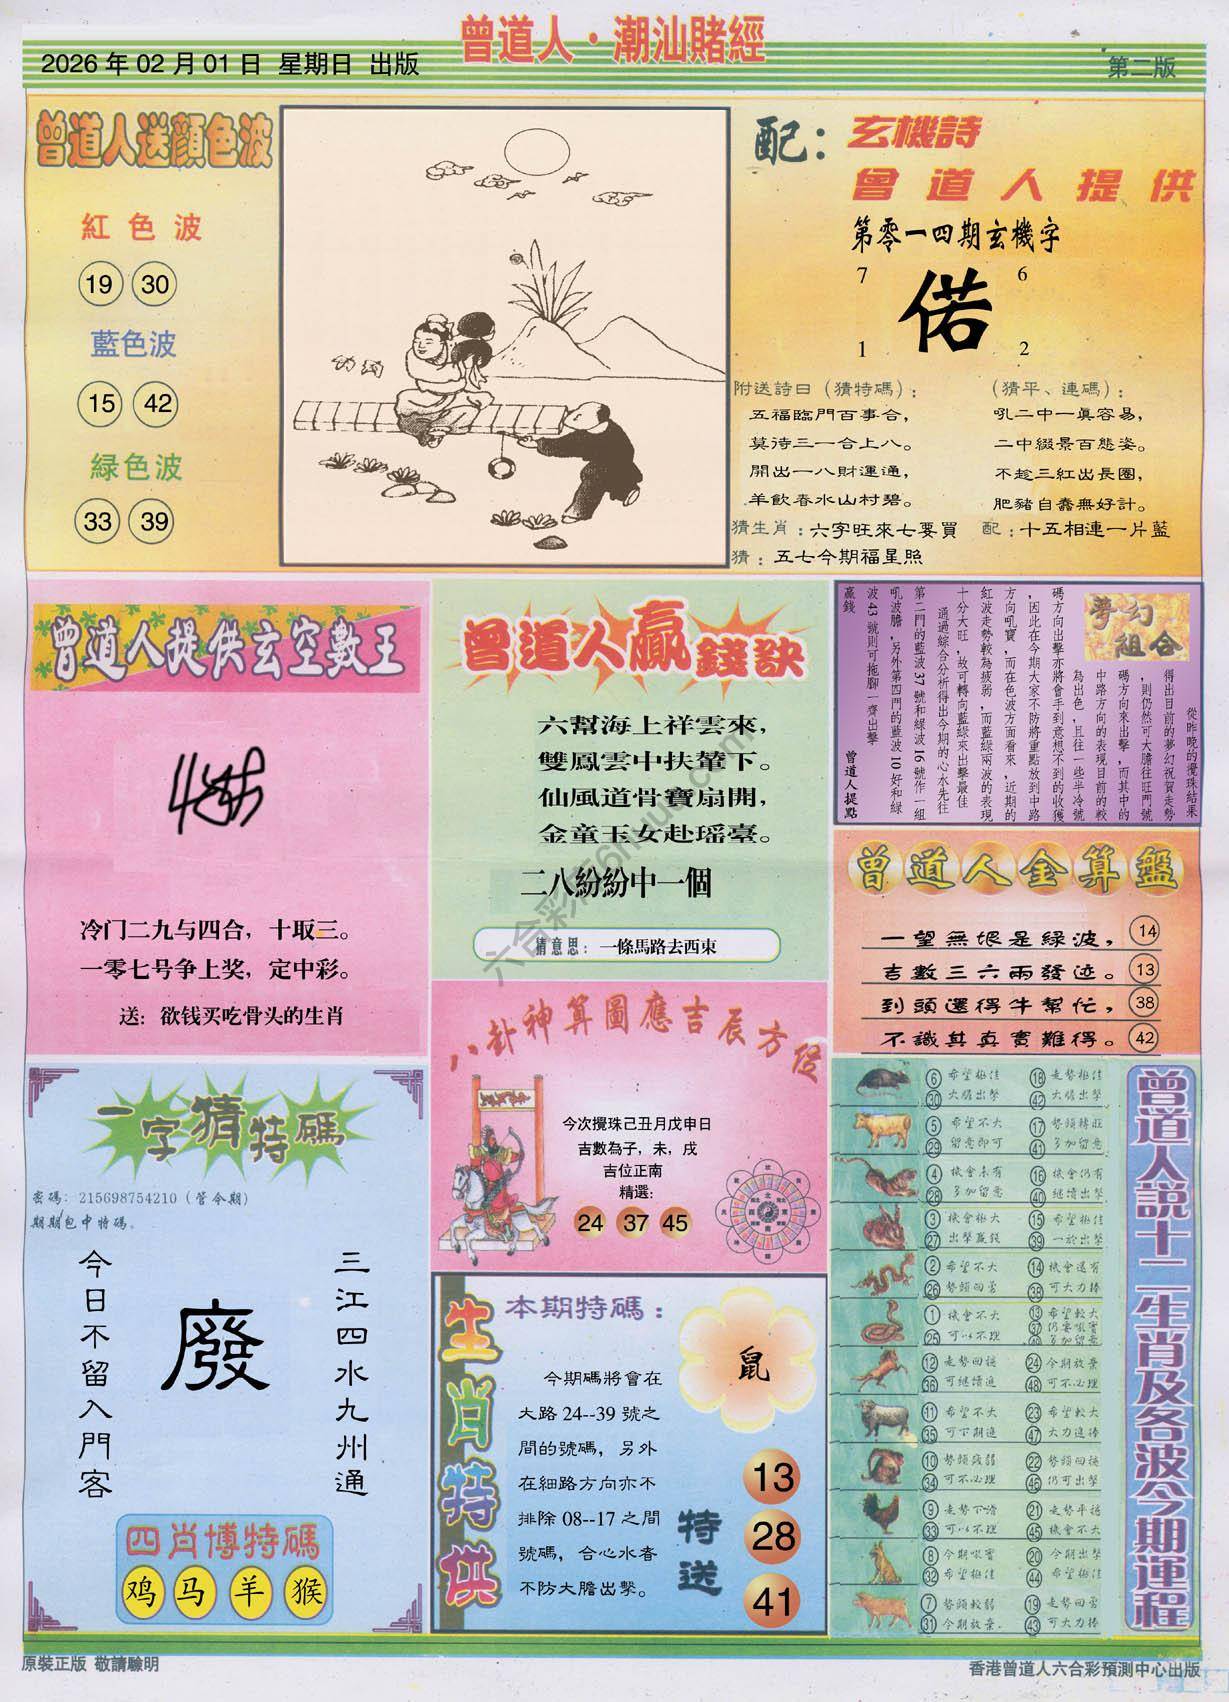 曾道人·潮汕賭經
2026 年 02 月 01 日 星期日 出版
第二版
曾道人送顏色波
紅色波
19 30
藍色波
15 42
綠色波
33 39
配：
玄機詩
曾道人提供
第零一四期玄機字
7 6
偌
1 2
附送詩曰（猜特碼）：
五福臨門百事合，
莫待三一合上八。
開出一八財運通，
羊飲春水山村碧。
（猜平、連碼）：
吼二中一真容易，
二中綴景百態姿。
不趁三紅出長圈，
肥豬自蠢無好計。
猜生肖：六字旺來七要買
配：十五相連一片藍
猜：五七今期福星照
曾道人提供玄空數王
冷门二九与四合，十取三。
一零七号争上奖，定中彩。
送：欲钱买吃骨头的生肖
曾道人贏錢訣
六幫海上祥雲來，
雙鳳雲中扶輦下。
仙風道骨寶扇開，
金童玉女赴瑶臺。
二八紛紛中一個
猜意思：一條馬路去西東
夢幻
組合
從昨晚的攪珠結果
得出目前的夢幻祝賀走勢
，則仍然可大膽往旺門號
碼方向來出擊，而其中的
中路方向的表現目前的較
為出色，且往一些半冷號
碼方向出擊亦將會手到意想不到的收獲
，因此在今期大家不防將重點放到中路
方向吼寶，而在色波方面看來，近期的
紅波走勢較為疲弱，而藍綠兩波的表現
十分大旺，故可轉向藍綠來出擊最佳
通過綜合分析得出今期的心水先往
第二門的藍波 37 號和綠波 16 號作一組
吼波膽，另外第四門的藍波 10 好和綠
波 43 號則可拖腳一齊出擊
贏錢
曾道人提點
曾道人金算盤
一望無垠是綠波， 14
吉數三六兩發迹。 13
到頭還得牛幫忙， 38
不識其真實難得。 42
八卦神算圖應吉辰方位
今次攪珠己丑月戊申日
吉數為子，未，戌
吉位正南
精選：
24 37 45
一字猜特碼
密碼：215698754210（管今期）
期期包中特碼。
三江四水九州通
廢
今日不留入門客
四肖博特碼
鸡 马 羊 猴
生肖特供
本期特碼：
鼠
今期碼將會在
大路 24--39 號之
間的號碼，另外
在細路方向亦不
排除 08--17 之間
號碼，合心水者
不防大膽出擊。
特送
13
28
41
曾道人説十二生肖及各波今期運程
6 希望極佳 18 走勢極佳
30 大膽出擊 42 大膽出擊
5 希望不大 17 勢頭轉旺
29 留意即可 41 多加留意
4 機會未有 16 機會仍有
28 多加留意 40 繼續出擊
3 機會極大 15 希望極佳
27 出擊贏錢 39 一於出擊
2 希望不大 14 機會還有
26 勢頭回勇 38 可大力捧
1 機會不大 13 希望較大
25 可以不理 37 仍要吼實
多加留意
12 走勢回穩 24 今期放棄
36 可繼續追 48 可不必理
11 希望不大 23 希望較大
35 可下期追 47 大力追捧
10 勢頭減弱 22 勢頭回穩
34 可不必理 46 仍可出擊
9 走勢下滑 21 走勢平穩
33 可以不理 45 機會不大
8 今期吼實 20 今期出擊
32 希望極佳 44 希望極佳
7 勢頭較弱 19 走勢回勇
31 今期放棄 43 可大力捧
原裝正版 敬請驗明
香港曾道人六合彩預測中心出版